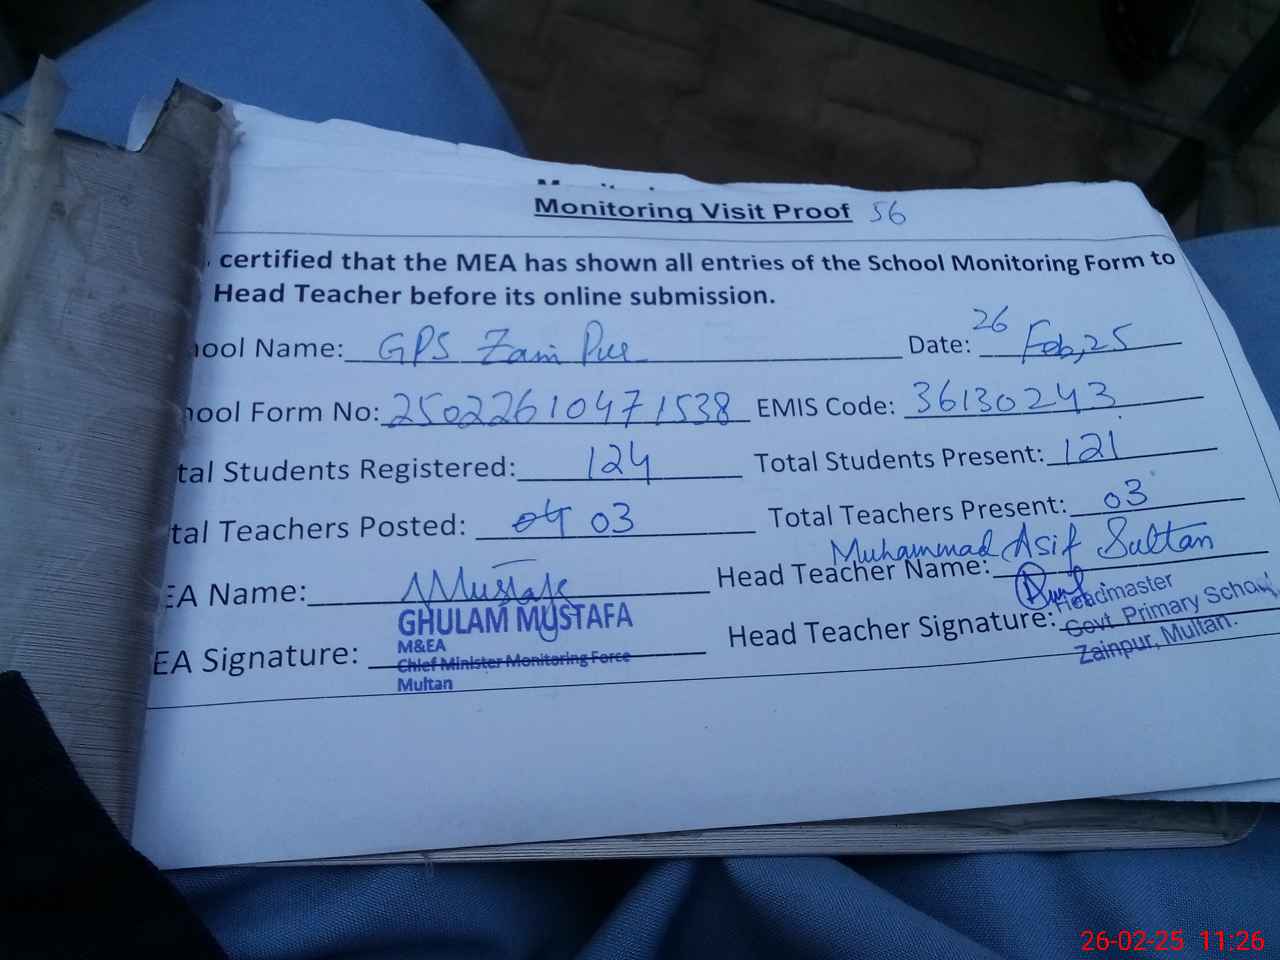 Monitoring Visit Proof 56
certified that the MEA has shown all entries of the School Monitoring Form to
Head Teacher before its online submission.
ool Name: GPS Zain Pur Date: 26 Feb, 25
ool Form No: 25022610471538 EMIS Code: 36130243
tal Students Registered: 124 Total Students Present: 121
tal Teachers Posted: 04 03 Total Teachers Present: 03
EA Name: GMustafa Head Teacher Name: Muhammad Asif Sultan
EA Signature: Head Teacher Signature:
GHULAM MUSTAFA
M&EA
Chief Minister Monitoring Force
Multan
Headmaster
Govt. Primary School,
Zainpur, Multan.
26-02-25 11:26